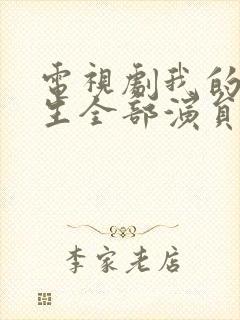 電視劇我的
生全部演員
李家老店